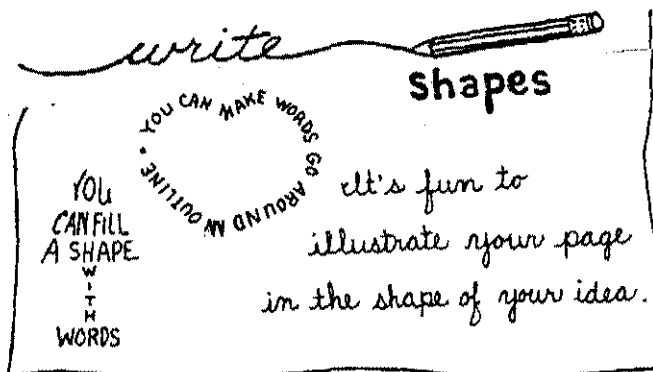 write
shapes
YOU CAN MAKE WORDS GO AROUND AN OUTLINE •
YOU
CAN FILL
A SHAPE
W
I
T
H
WORDS
It's fun to
illustrate your page
in the shape of your idea.